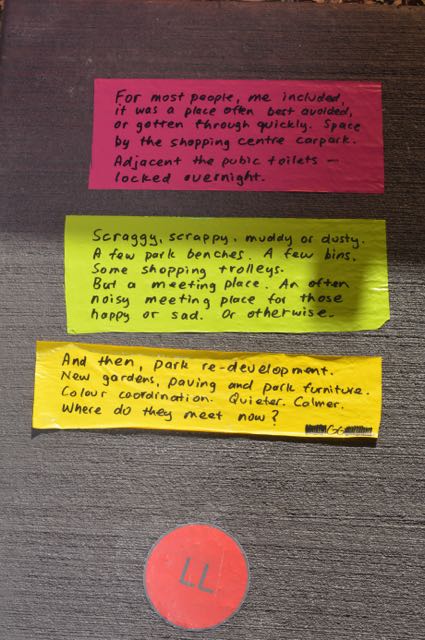 For most people, me included,
it was a place often best avoided,
or gotten through quickly. Space
by the shopping centre carpark.
Adjacent the pubic toilets –
locked overnight.
Scraggy, scrappy, muddy or dusty.
A few park benches. A few bins.
Some shopping trolleys.
But a meeting place. An often
noisy meeting place for those
happy or sad. Or otherwise.
And then, park re-development.
New gardens, paving and park furniture.
Colour coordination. Quieter. Calmer.
Where do they meet now?
GG
LL